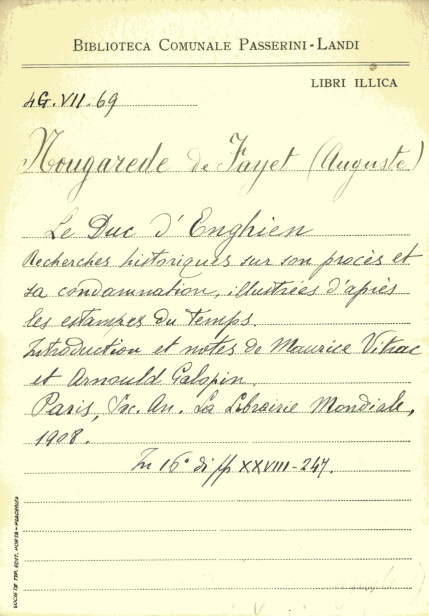 BIBLIOTECA COMUNALE PASSERINI-LANDI
LIBRI ILLICA
4G.VII.69
Nougarede de Fayet (Auguste)
Le Duc d'Enghien
Recherches historiques sur son procès et
sa condamnation, illustrées d'après
les estampes du temps.
Introduction et notes de Maurice Vitrac
et Arnould Galopin.
Paris, Soc. An. La Librairie Mondiale,
1908.
In 16° di pp XXVIII-247.
SOCIETÀ TIP. EDIT. PORTA - PIACENZA